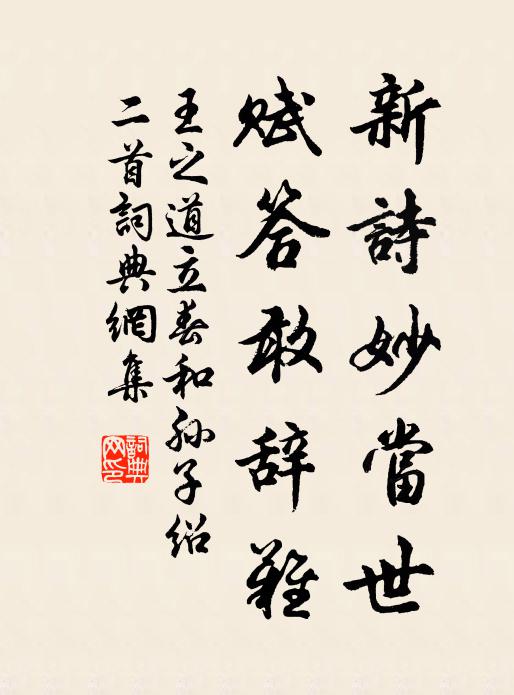 新詩妙當世
赋答敢辞難
王之道立春和孙子绍
二首詞典網集
詞典网印